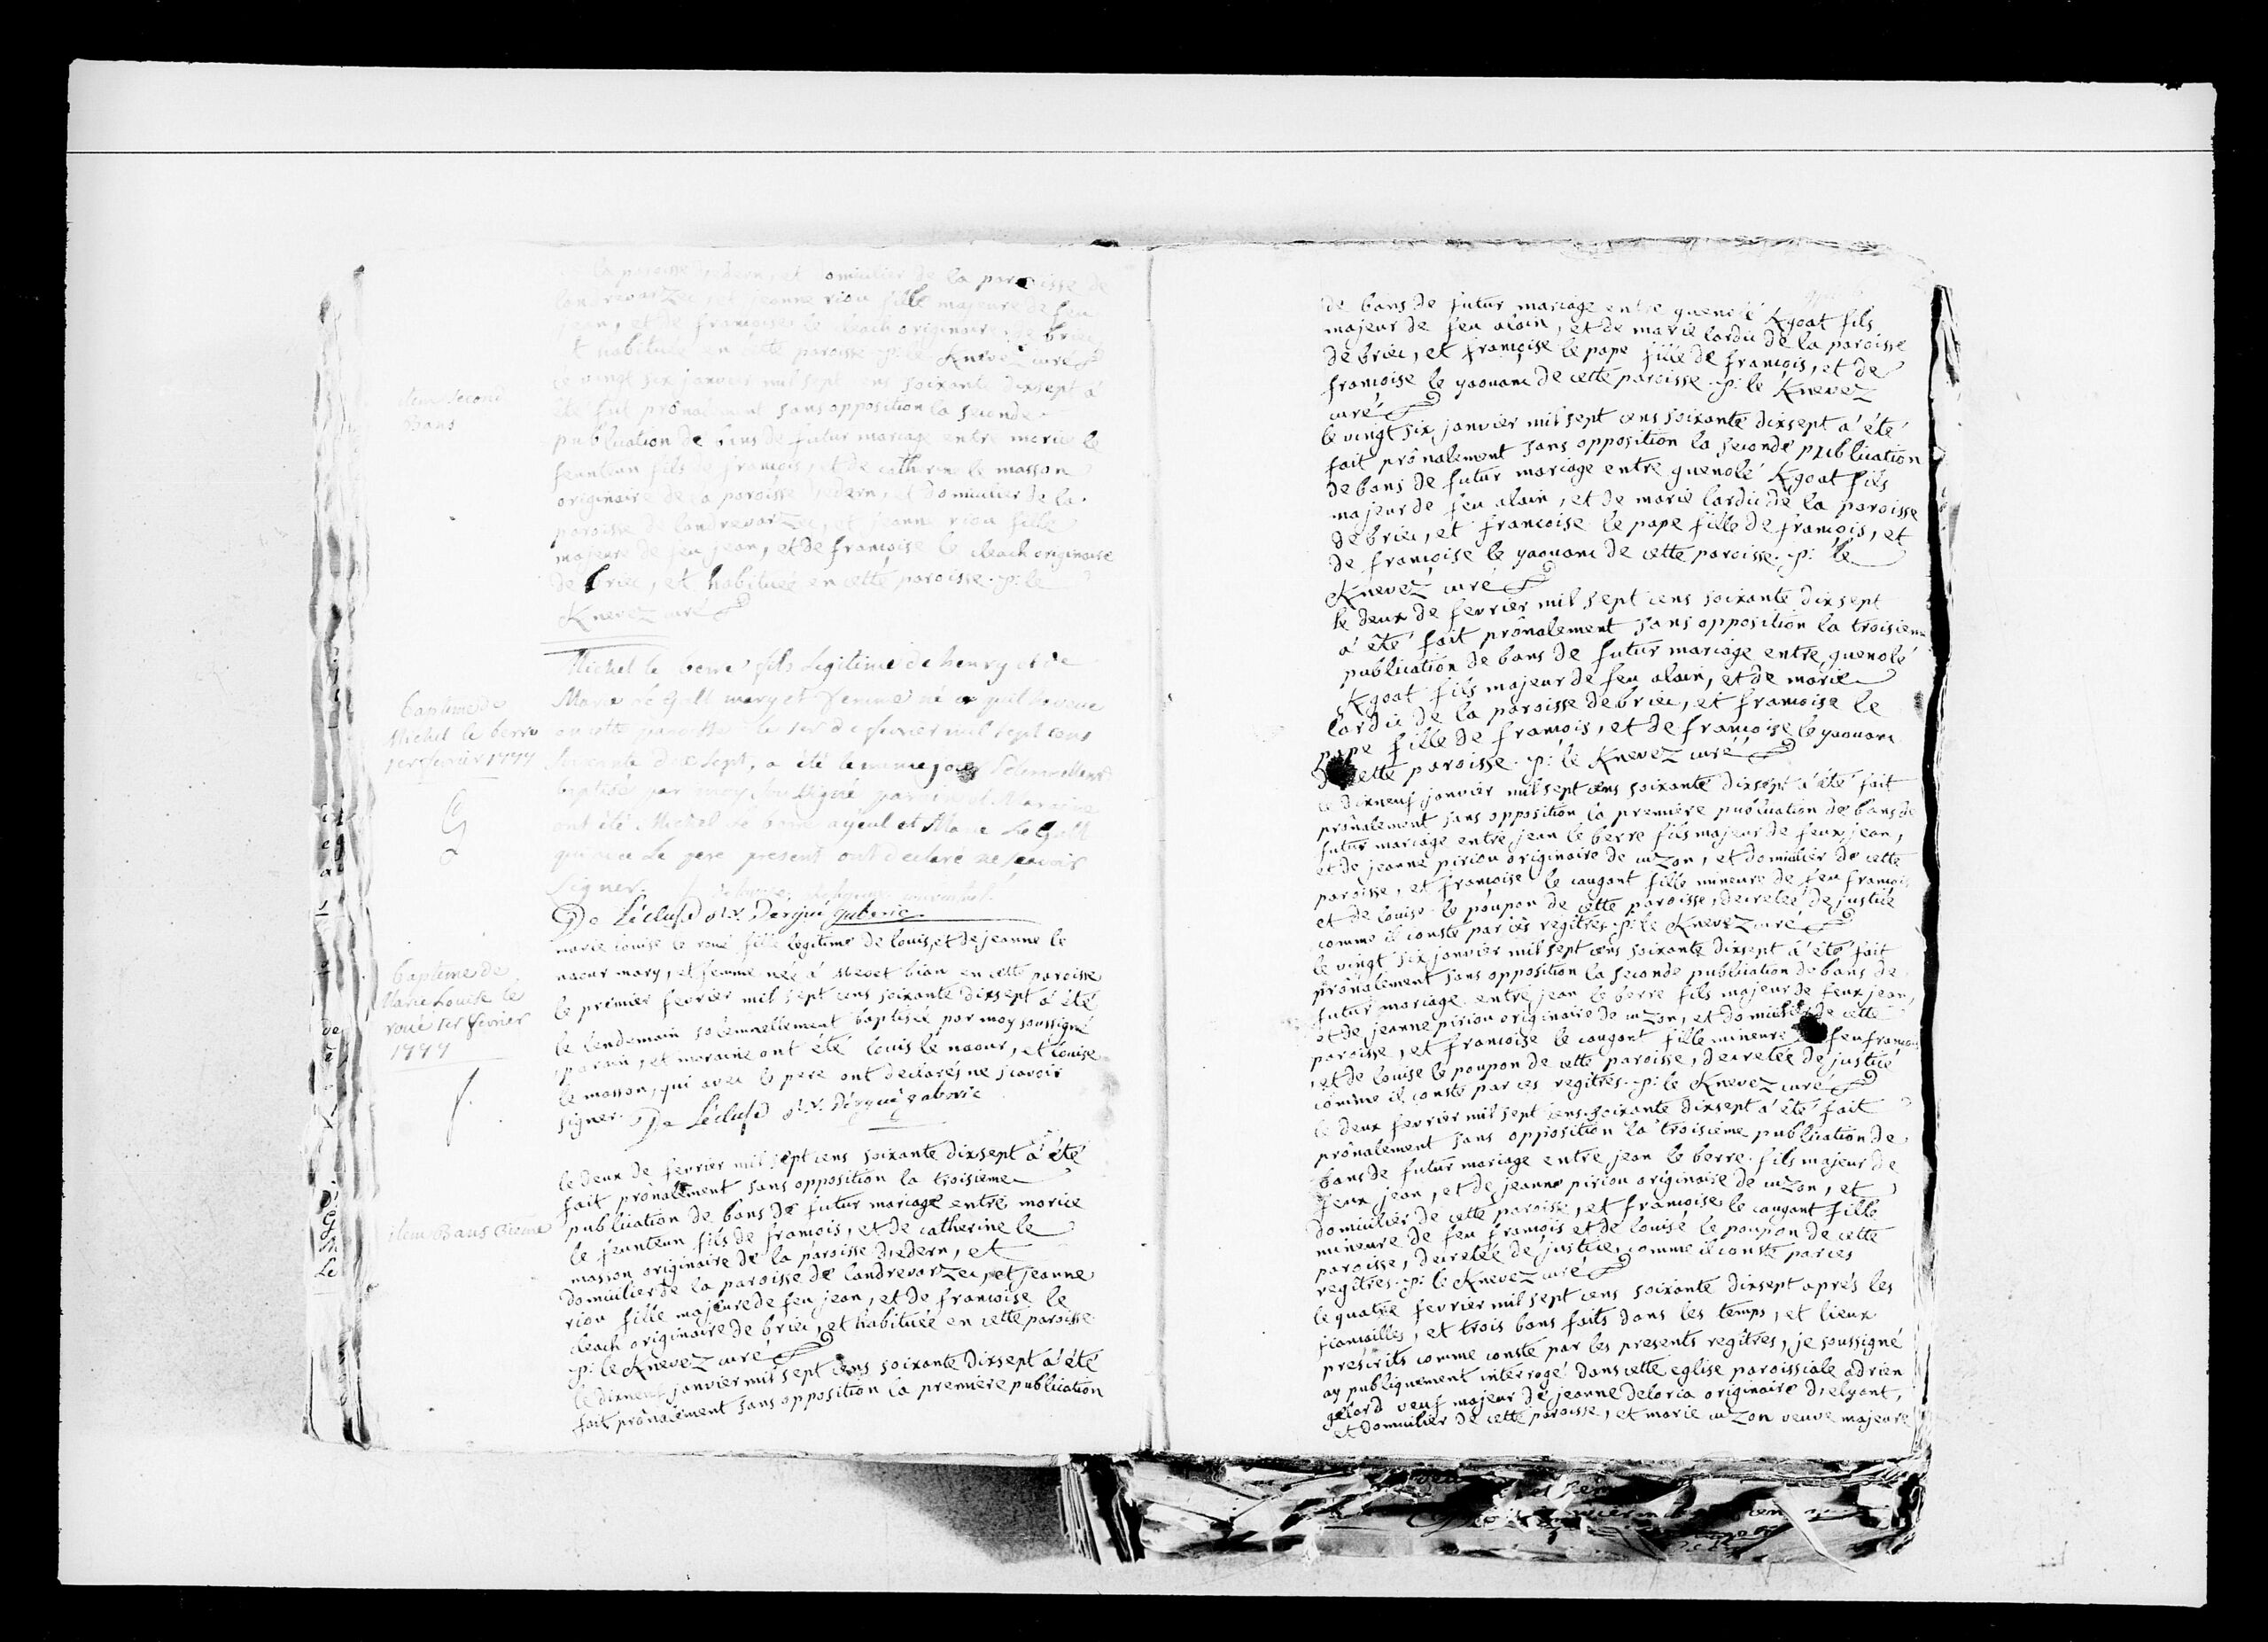 la paroisse dedern, et omicilier de la paroisse de
landrevarzec, et jeanne riou fille majeure de feu
jean, et de francoise le cleach originaire de briec
et habituée en cette paroisse. p: le Knevez curé
item second
Bans
le vingt six janvier mil sept cens soixante dixsept a
été fait prônalement sans opposition la seconde
publication de bans de futur mariage entre morice le
feunteun fils de francois, et de catherine le masson
originaire de la paroisse dedern, et domicilier de la
paroisse de landrevarzec, et jeanne riou fille
majeure de feu jean, et de francoise le cleach originaire
de briec, et habituée en cette paroisse. p: le
Knevez curé
Baptême de
Michel le berre
1er fevrier 1777
G
Michel le berre fils legitime de henry et de
Marie le Gall mary et femme né
en cette paroisse le 1er de fevrier mil sept cens
soixante dix sept, a été le meme jour solemnellement
baptisé par moy soussigné parrain et Maraine
ont été Michel le berre ayeul et Marie Le Gall
qui avec Le pere present ont declaré ne scavoir
signer.
De Lécluse d r.r. Dergué gaberic
baptême de
Marie Louise le
roué 1er fevrier
1777
f.
marie louise le roué fille legitime de louis, et de jeanne le
naour mary, et femme née á Mezet bian en cette paroisse
le premier fevrier mil sept cens soixante dixsept á été
le lendemain solemnellement baptisée par moy soussigné
parain, et maraine ont été louis le naour, et louise
le masson, qui avec le pere ont declarés ne scavoir
signer. De Lécluse d r.r. Dérgué gaberic
item Bans 3ieme
le deux de fevrier mil sept cens soixante dixsept á été
fait prônalement sans opposition la troisieme
publication de bans de futur mariage entre morice
le feunteun fils de francois, et de catherine le
masson originaire de la paroisse dedern, et
domicilier de la paroisse de landrevarzec, et jeanne
riou fille majeure de feu jean, et de francoise le
cleach originaire de briec, et habituée en cette paroisse
p: le Knevez curé
le dixneuf janvier mil sept cens soixante dixsept á été
fait prônalement sans opposition la premiere publication
de bans de futur mariage entre guenolé Kgoat fils
majeur de feu alain, et de marie lardic de la paroisse
de briec, et francoise le pape fille de francois, et de
francoise le yaouanc de cette paroisse. p: le Knevez
curé
le vingt six janvier mil sept cens soixante dixsept á été
fait prônalement sans opposition la seconde publication
de bans de futur mariage entre guenolé Kgoat fils
majeur de feu alain, et de marie lardic de la paroisse
de briec, et francoise le pape fille de francois, et
de francoise le yaouanc de cette paroisse. p: le
Knevez curé
le deux de fevrier mil sept cens soixante dixsept
á été fait prônalement sans opposition la troisieme
publication de bans de futur mariage entre guenolé
Kgoat fils majeur de feu alain, et de marie
lardic de la paroisse de briec, et francoise le
pape fille de francois, et de francoise le yaouanc
de cette paroisse. p: le Knevez curé
le dixneuf janvier mil sept cens soixante dixsept á été fait
prônalement sans opposition la premiere publication de bans de
futur mariage entre jean le berre fils majeur de feux jean,
et de jeanne piriou originaire de cuzon, et domicilier de cette
paroisse, et francoise le caugant fille mineure de feu francois
et de louise le poupon de cette paroisse, decretée de justice
comme il conste par ces regitres. p: le Knevez curé
le vingt six janvier mil sept cens soixante dixsept á été fait
prônalement sans opposition la seconde publication de bans de
futur mariage entre jean le berre fils majeur de feux jean,
et de jeanne piriou originaire de cuzon, et domicilier de cette
paroisse, et francoise le caugant fille mineure feu francois
, et de louise le poupon de cette paroisse, decretée de justice
comme il conste par ces regitres. p: le Knevez curé
le deux fevrier mil sept cens soixante dixsept á été fait
prônalement sans opposition la troisieme publication de
bans de futur mariage entre jean le berre fils majeur de
feux jean, et de jeanne piriou originaire de cuzon, et
domicilier de cette paroisse, et francoise le caugant fille
mineure de feu francois et de louise le poupon de cette
paroisse, decretée de justice, comme il conste par ces
regitres. p: le Knevez curé
le quatre fevrier mil sept cens soixante dixsept aprés les
fiancailles, et trois bans faits dans les temps, et lieux
prescrits comme conste par les presents regitres, je soussigné
ay publiquement interrogé dans cette eglise paroissiale adrien
gelard veuf majeur de jeanne deloria originaire delyant,
et domicilier de cette paroisse, et marie cuzon veuve majeure